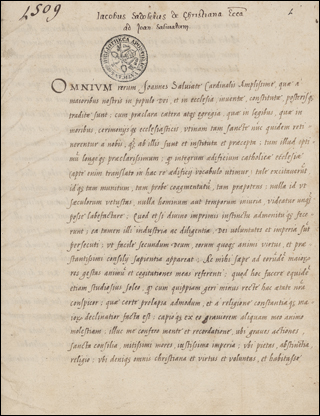 1509
Iacobus Sadoletus de Christiana Ecca
ad Joan. Salviatum
BIBLIOTHECA APOSTOLICA
OMNIVM rerum Joannes Saluiate Cardinalis Amplissime, quæ a
maioribus nostris in populo Dei, et in ecclesia, inuentæ, constitutæ, posterisq;
traditæ sunt: cum præclara cætera atq; egregia, quæ in legibus, quæ in
moribus, cerimonijsq; ecclesiasticis, utinam tam sancte nunc quidem reti
nerentur a nobis, q; ab illis sunt et instituta et præcepta; tum illud opti
mū longeq; præclarissimum; q; integrum ædificium catholicæ ecclesiæ
apte enim translato in hac re ædificij vocabulo utimur; tale excitauerūt
id q; tam munitum, tam probe coagmentatū, tam præpotens; nulla id vt
sæculorum vetustas, nulla hominum aut temporum iniuria, videatur unq;
posse labefactare. Quod et si diuino imprimis instinctu admonitiq; fece-
runt; ea tamen illi industria ac diligentia, Dei voluntates et imperia sut
persecuti; vt facile secundum deum, eorum quoq; animi virtus, et præ-
stantissimi consilij sapientia appareat. Ac mihi sæpe ad eorūdē maio⁊
res gestas animū et cogitationes meas referenti; quod hoc facere equidē
etiam studiosius soleo, q; cum quippiam geri minus recte hac ætate nrā
conspicor; quæ certe prolapsa admodum, et a religione constantiaq; ma
iorū declinatior facta est: capio q; ex eo grauiorem aliquam meo animo
molestiam: illuc me confero mente et recordatione, ubi graues actiones,
sancta consilia, mitissimi mores, iustissima imperia: vbi pietas, abstinētia,
religio: vbi deniq; omnis christiana et virtus et voluntas, et habitasse